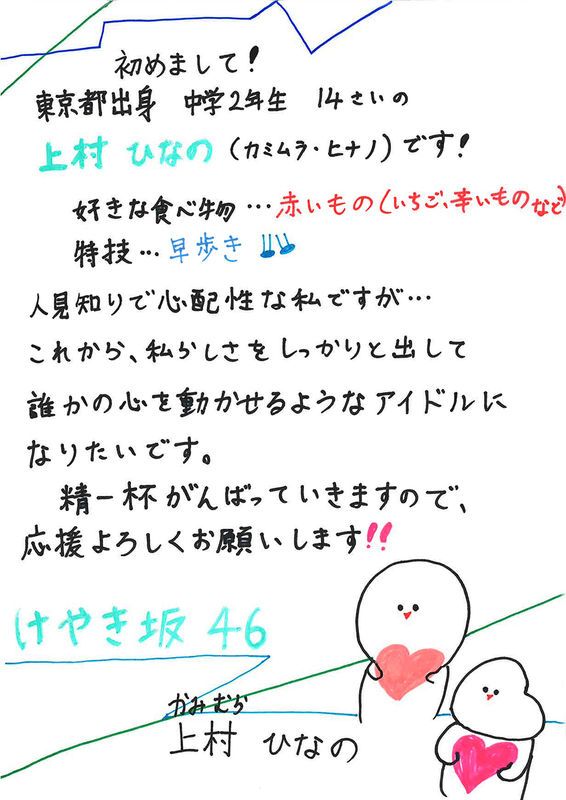 初めまして!
東京都出身 中学2年生 14さいの
上村 ひなの (カミムラ・ヒナノ)です!
好きな食べ物…赤いもの(いちご、辛いものなど)
特技…早歩き
人見知りで心配性な私ですが…
これから、私らしさをしっかりと出して
誰かの心を動かせるようなアイドルに
なりたいです。
精一杯がんばっていきますので、
応援よろしくお願いします!!
けやき坂46
かみむら
上村 ひなの